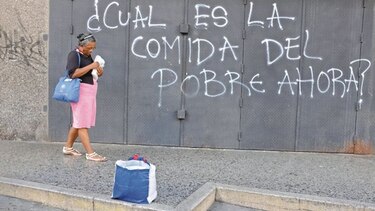 ¿CUAL ES LA
COMIDA DEL
POBRE AHORA?